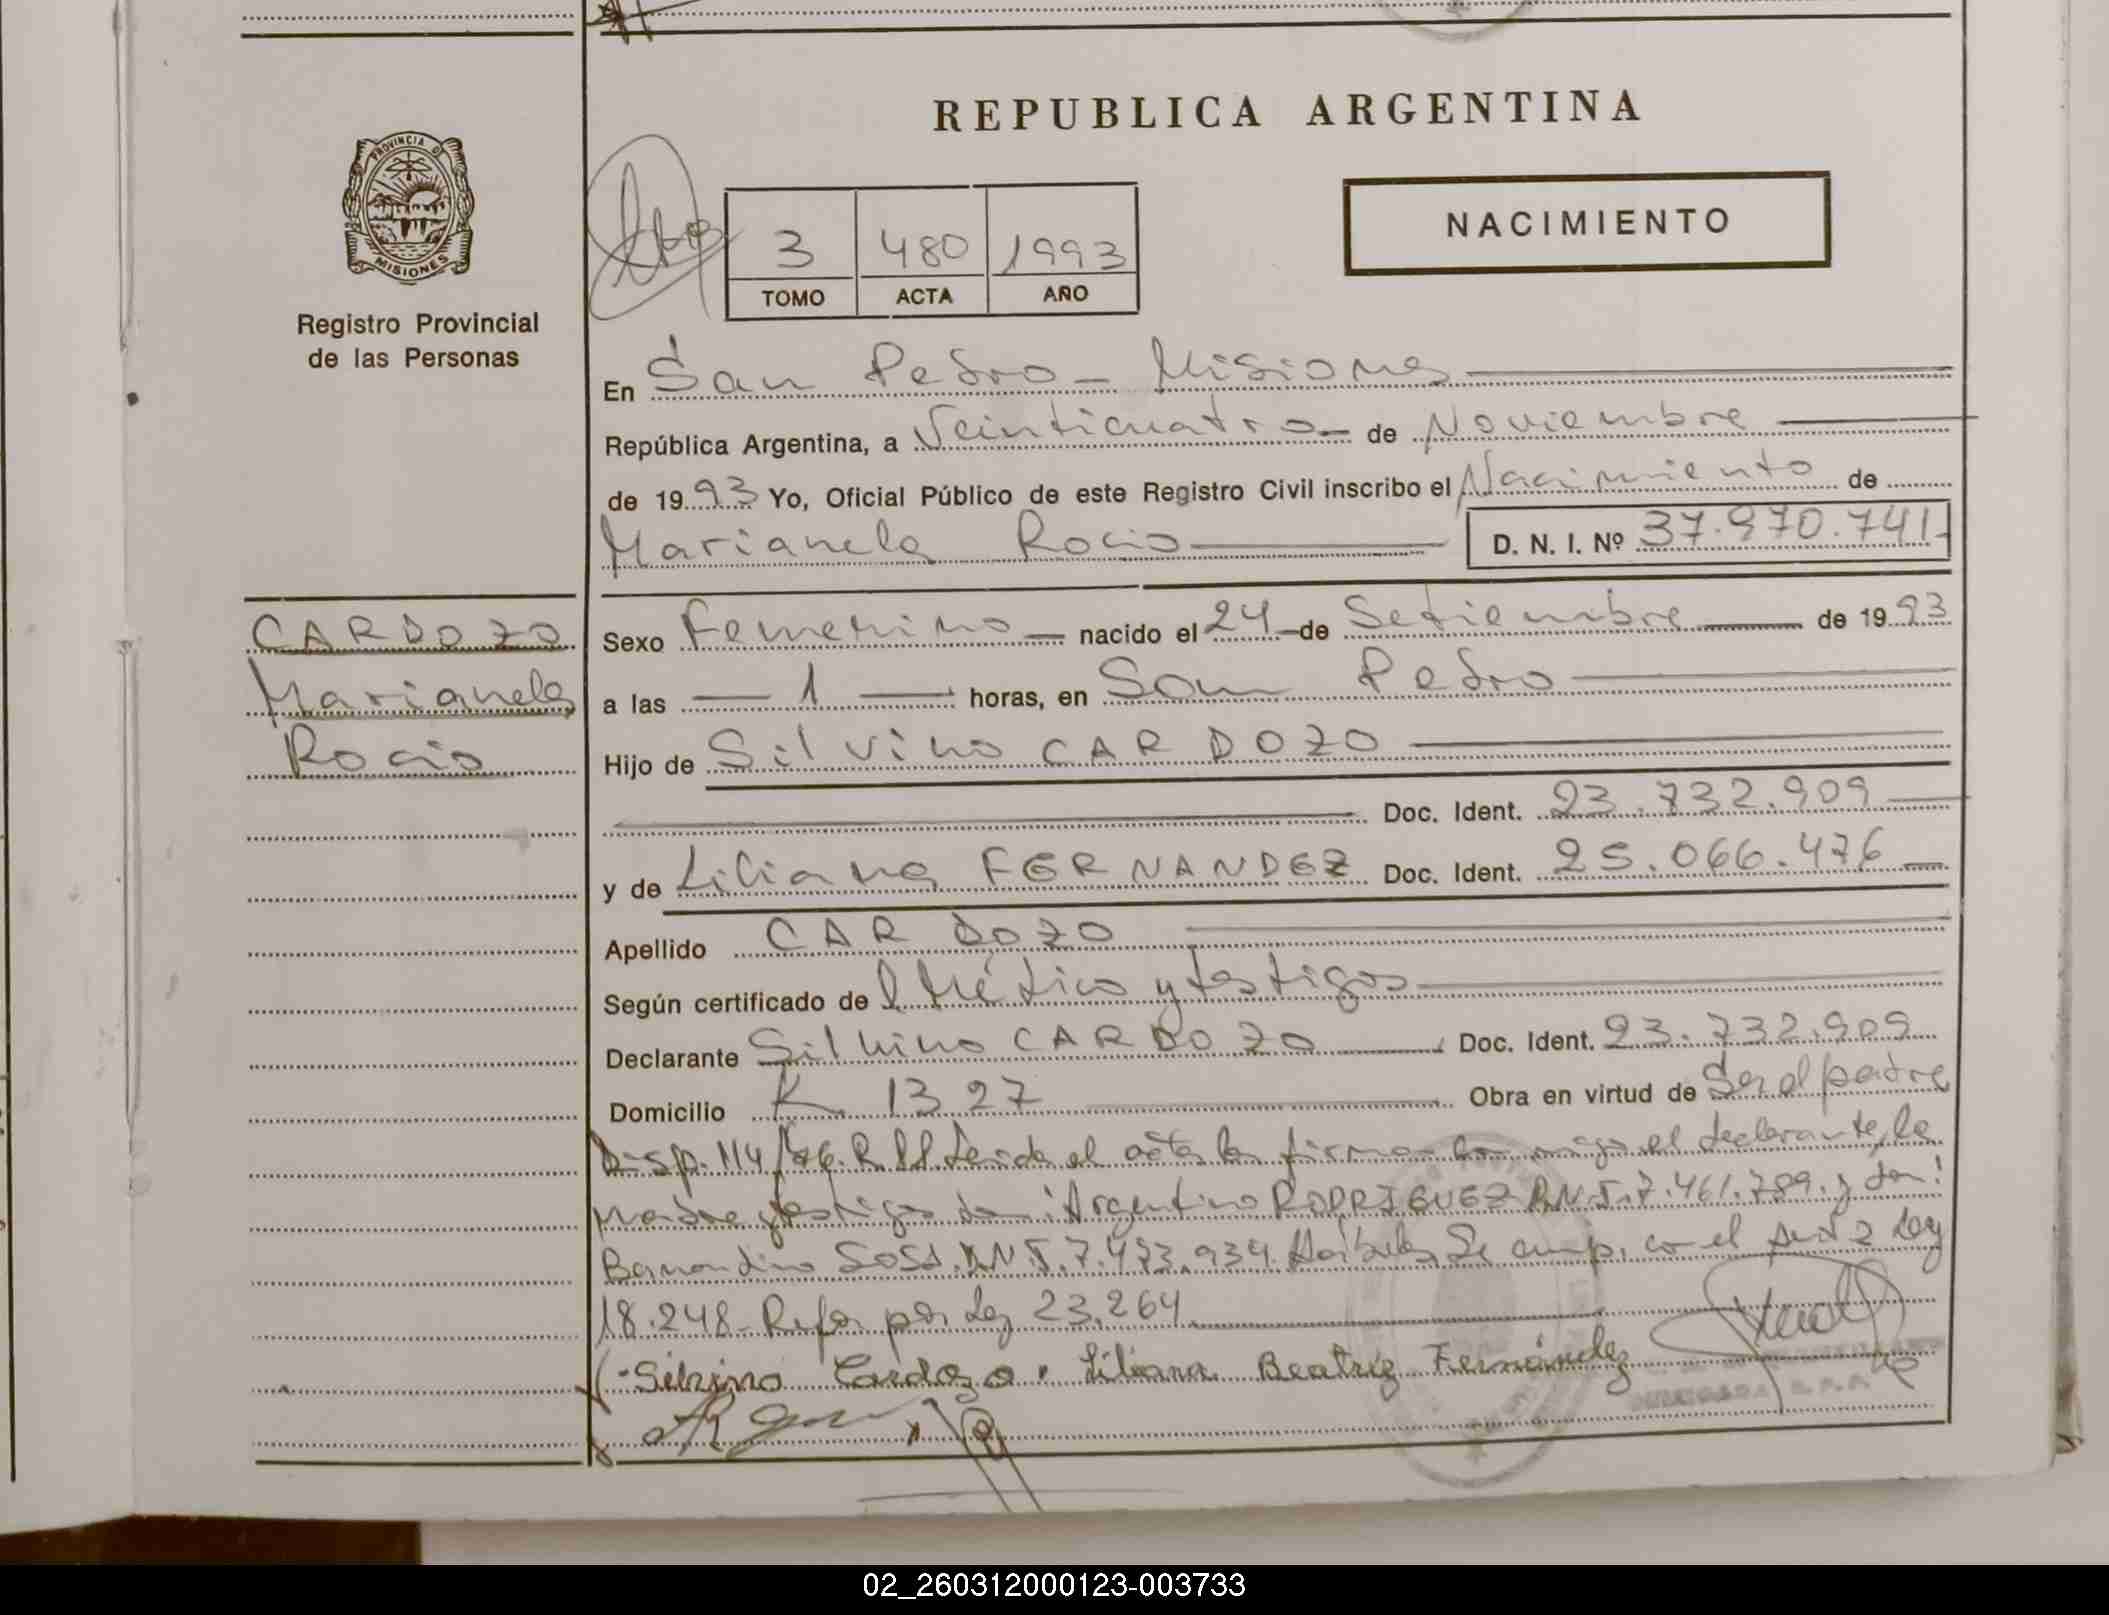 REPUBLICA ARGENTINA
PROVINCIA D
MISIONES
Registro Provincial
de las Personas
3 480 1993
TOMO ACTA AÑO
NACIMIENTO
En San Pedro - Misiones
República Argentina, a Veinticuatro - de Noviembre
de 1993 Yo, Oficial Público de este Registro Civil inscribo el Nacimiento de
Marianela Rocio D. N. I. Nº 37.970.741-
CARDOZO
Marianela
Rocio
Sexo Femenino nacido el 24 - de Setiembre de 1993
a las 1 horas, en San Pedro
Hijo de Silvino CARDOZO
Doc. Ident. 23.732.909
y de Liliana FERNANDEZ Doc. Ident. 25.066.476
Apellido CARDOZO
Según certificado de Médico y testigos
Declarante Silvino CARDOZO Doc. Ident. 23.732.909
Domicilio K. 1327 Obra en virtud de Ser el padre
Disp. 114/76. Leida el acta la firman conmigo el declarante, la
Madre y testigos don: Argentino RODRIGUEZ D.N.I. 7.461.789. y don:
Bernardino SOSA. D.N.I. 7.473.934. Se cump. con el Ley
18.248 - Refor por Ley 23.264
Silvino Cardozo. Liliana Beatriz Fernández
02_260312000123-003733